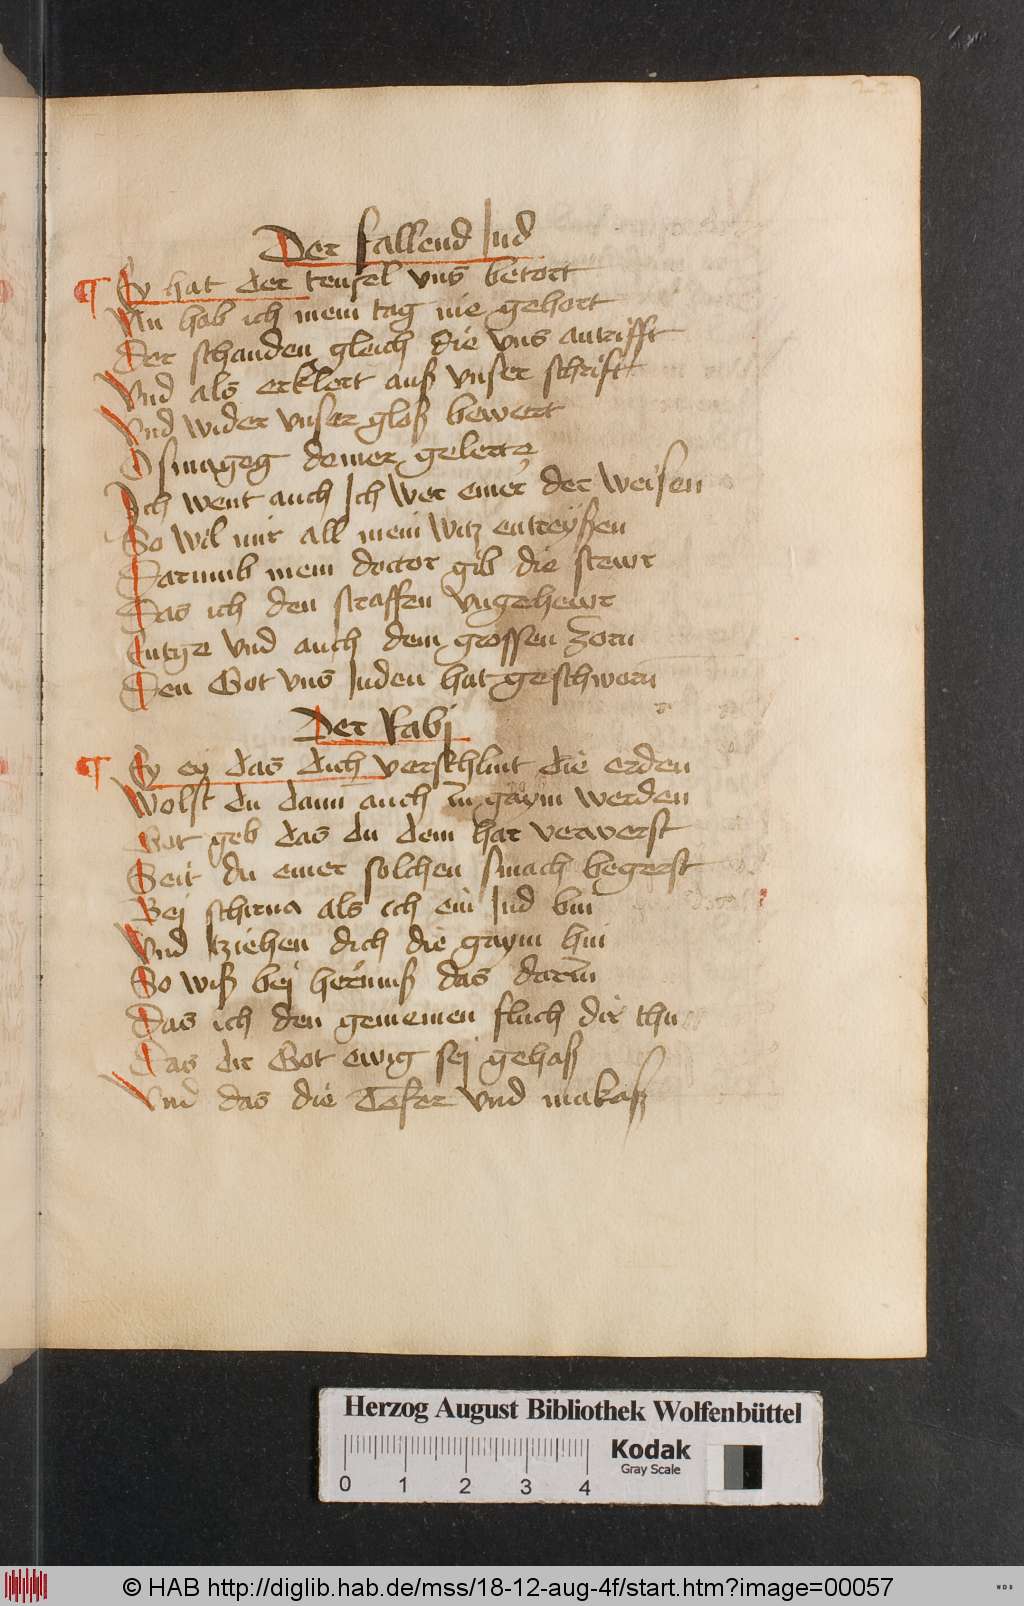 Der fallend Jud
Ey hat der teufel vns betort
Nu hab ich mein tag nie gehort
Der schanden gleich die vns antrifft
Vnd als erklert auß vnser schrift
Vnd wider vnser gloß bewert
O sinagog deiner gelerte
Ich went auch Ich wer einer der weisen
So wil mir all mein witz entreyssen
Darumb mein doctor gib die stewr
Das ich den straffen vngehewr
Entge vnd auch dem grossen zorn
Den Got vns Juden hat geschworn
Der Rabj
Ey ey das dich verschlint die erden
Wolst du dann auch ein gaym werden
Got geb das du dem har verwerst
Seit du einer solchen smach begerst
Bej schirna als ich ein Jud bin
Vnd ziehen dich die gaym hin
So wiß bej herimiß das darin
Das ich den gemeinen fluch dir thu
Das dir Got ewig sej gehaß
Vnd das die Tefer vnd makaß
Herzog August Bibliothek Wolfenbüttel
Kodak
Gray Scale
0 1 2 3 4
© HAB http://diglib.hab.de/mss/18-12-aug-4f/start.htm?image=00057